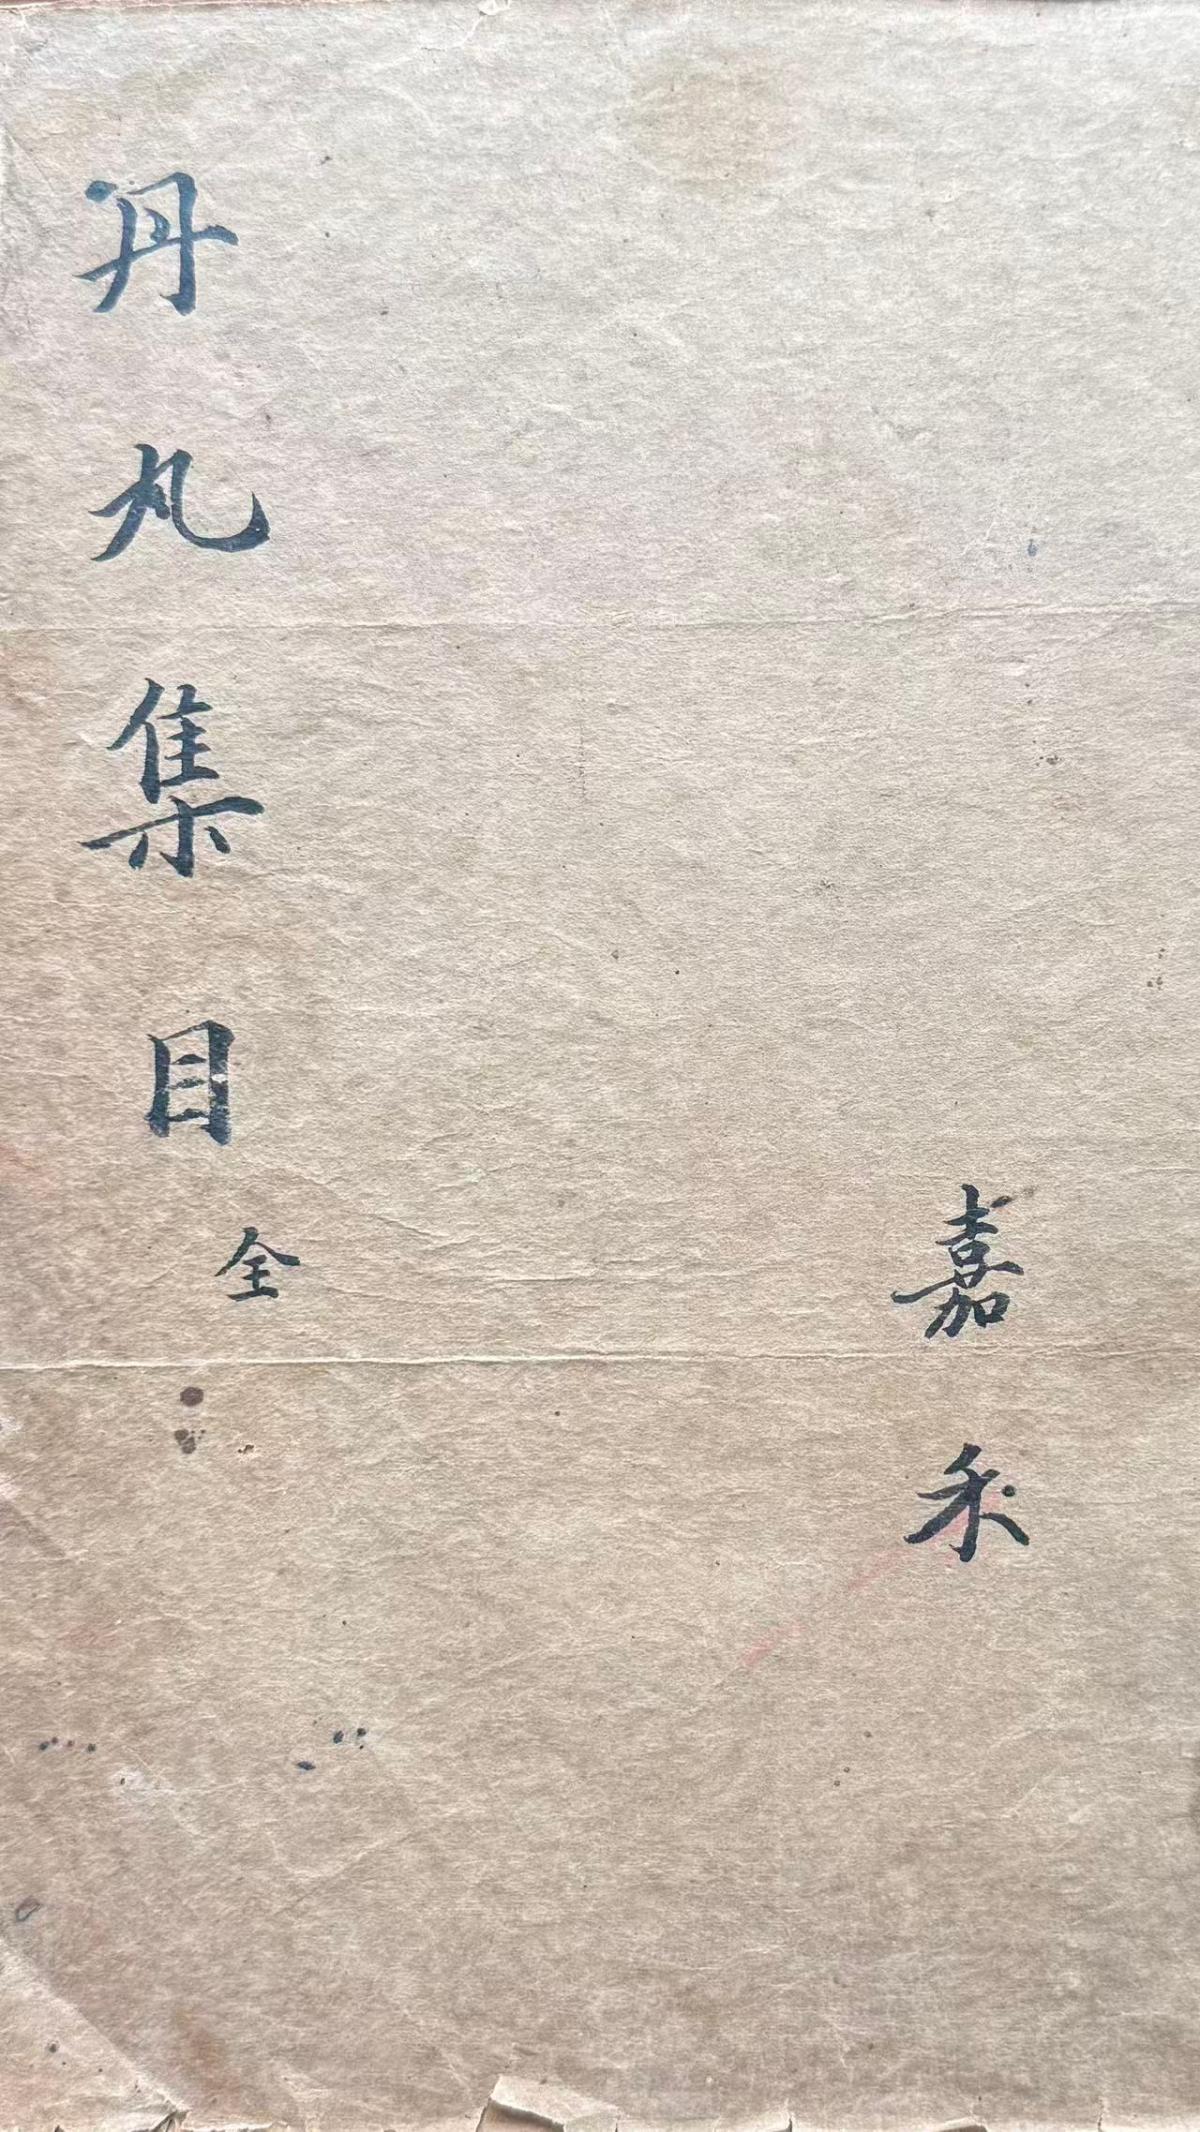 嘉禾
丹丸集目全